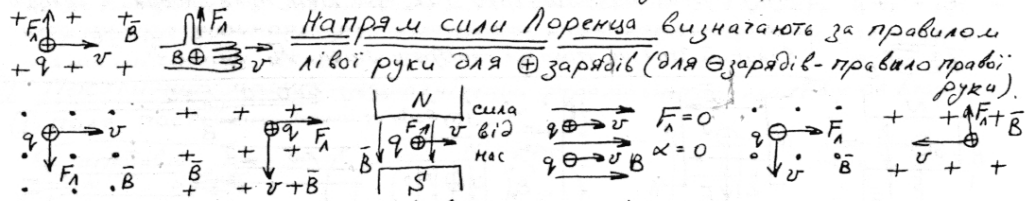 Напрям сили Лоренца визначають за правилом
лівої руки для ⊕ зарядів (для ⊖ зарядів - правило правої
руки).
+ F_Л + + B̅
q v
+ + + +
F_Л
B v
q v
F_Л B̅
+ + +
q F_Л
+ B̅ + +
v + B̅
N
B̅ q F v
S
сила
від
нас
q v
q v B
F_Л = 0
α = 0
q F_Л
v B̅
+ + F_Л + B̅
v
+ + +